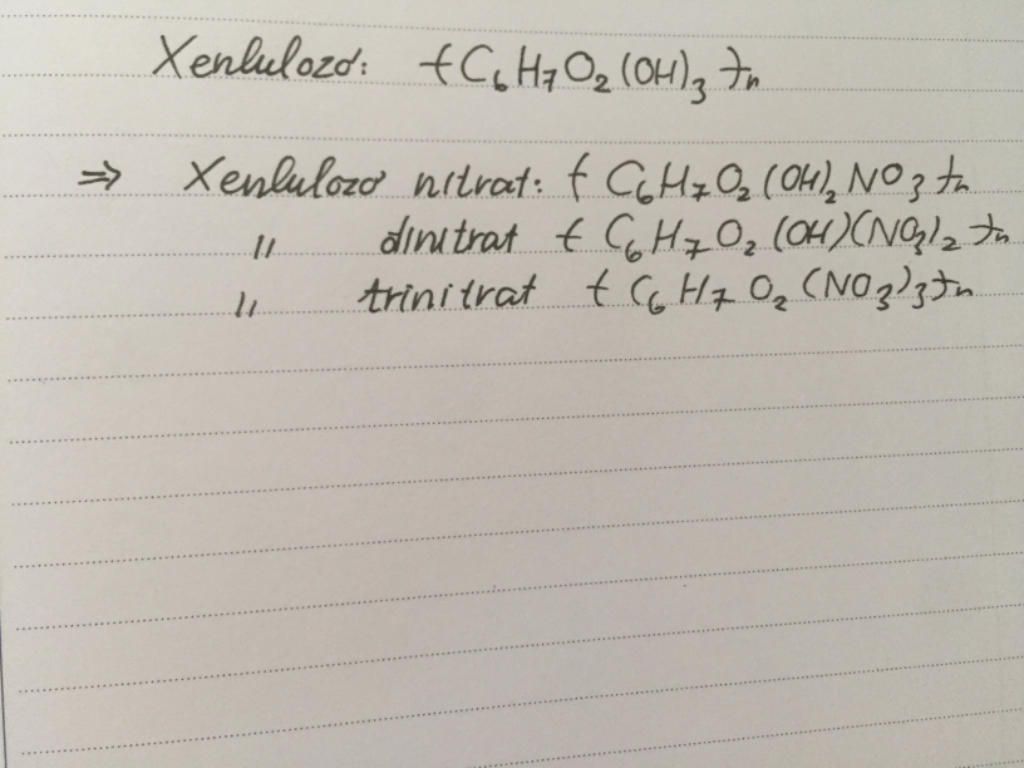 Xenlulozơ: ⁅C₆H₇O₂(OH)₃⁆ₙ
⇒ Xenlulozơ nitrat: ⁅C₆H₇O₂(OH)₂NO₃⁆ₙ
〃 dinitrat ⁅C₆H₇O₂(OH)(NO₃)₂⁆ₙ
〃 trinitrat ⁅C₆H₇O₂(NO₃)₃⁆ₙ